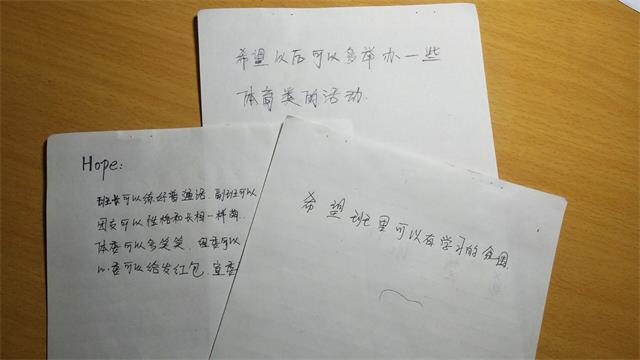 希望以后可以多举办一些
体育类的活动.
Hope:
班长可以练好普通话, 副班可以
团支可以性格和长相一样
体委可以多笑笑, 组委可以
心委可以给发红包, 宣委
希望班里可以有学习的氛围.